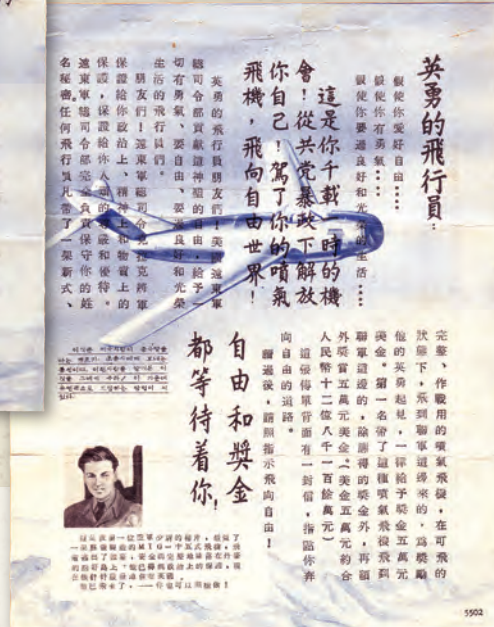 英勇的飛行員：
假使你愛好自由……
假使你有勇氣……
假使你要過良好和光榮的生活……
這是你千載一時的機
會！從共党暴政下解放
你自己！駕了你的噴氣
飛機，飛向自由世界！
英勇的飛行員朋友們！美國遠東軍
總司令部貢獻這神聖的自由，給予一
切有勇氣、要自由、要過良好和光榮
生活的飛行員們。
朋友們！遠東軍總司令克拉克將軍
保證給你政治上、精神上和物質上的
保護，保證給你人道的尊嚴和優待。
遠東軍總司令部完全負責保守你的姓
名秘密。任何飛行員凡帶了一架新式、
完整、作戰用的噴氣飛機，在可飛的
狀態下，飛到聯軍這邊來的，為獎勵
他的英勇起見，一律給予獎金五萬元
美金。第一名帶了這種噴氣飛機飛到
聯軍這邊的，除應得的獎金外，再額
外獎賞五萬元美金。（美金五萬元約合
人民幣十二億八千一百餘萬元）
這張傳單背面有一封信，指點你奔
向自由的道路。
讀過後，請照指示飛向自由！
自由和獎金
都等待着你！
5502